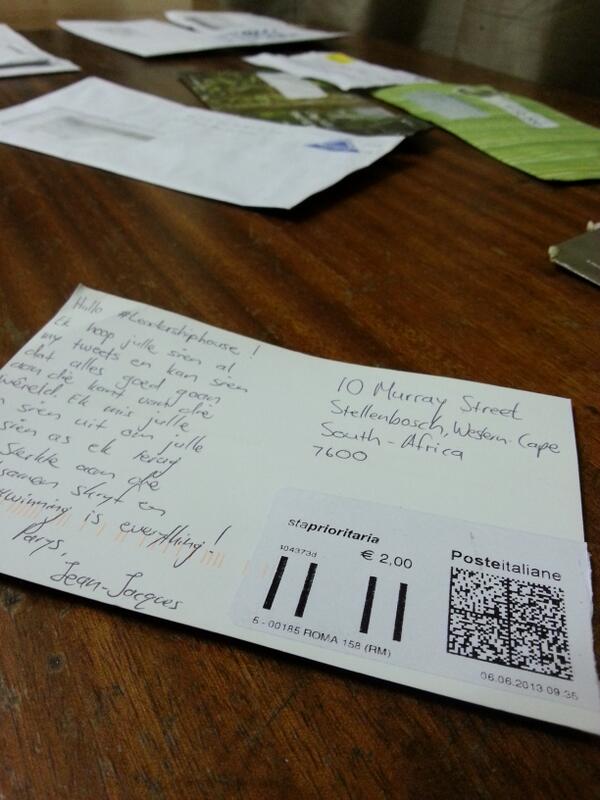 Hallo #Leadershiphouse!
Ek hoop julle sien al
my tweets en kan sien
dat alles goed gaan
aan die kant van die
wêreld. Ek mis julle
sien uit om julle
sien as ek terug
Sterkte aan die
saamen skryf en
#winning is everything!
Parys,
Jean-Jacques
10 Murray Street
Stellenbosch, Western-Cape
South-Africa
7600
staprioritaria
404373d
€ 2,00
5 - 00185 ROMA 158 (RM)
Posteitaliane
06.06.2013 09.35